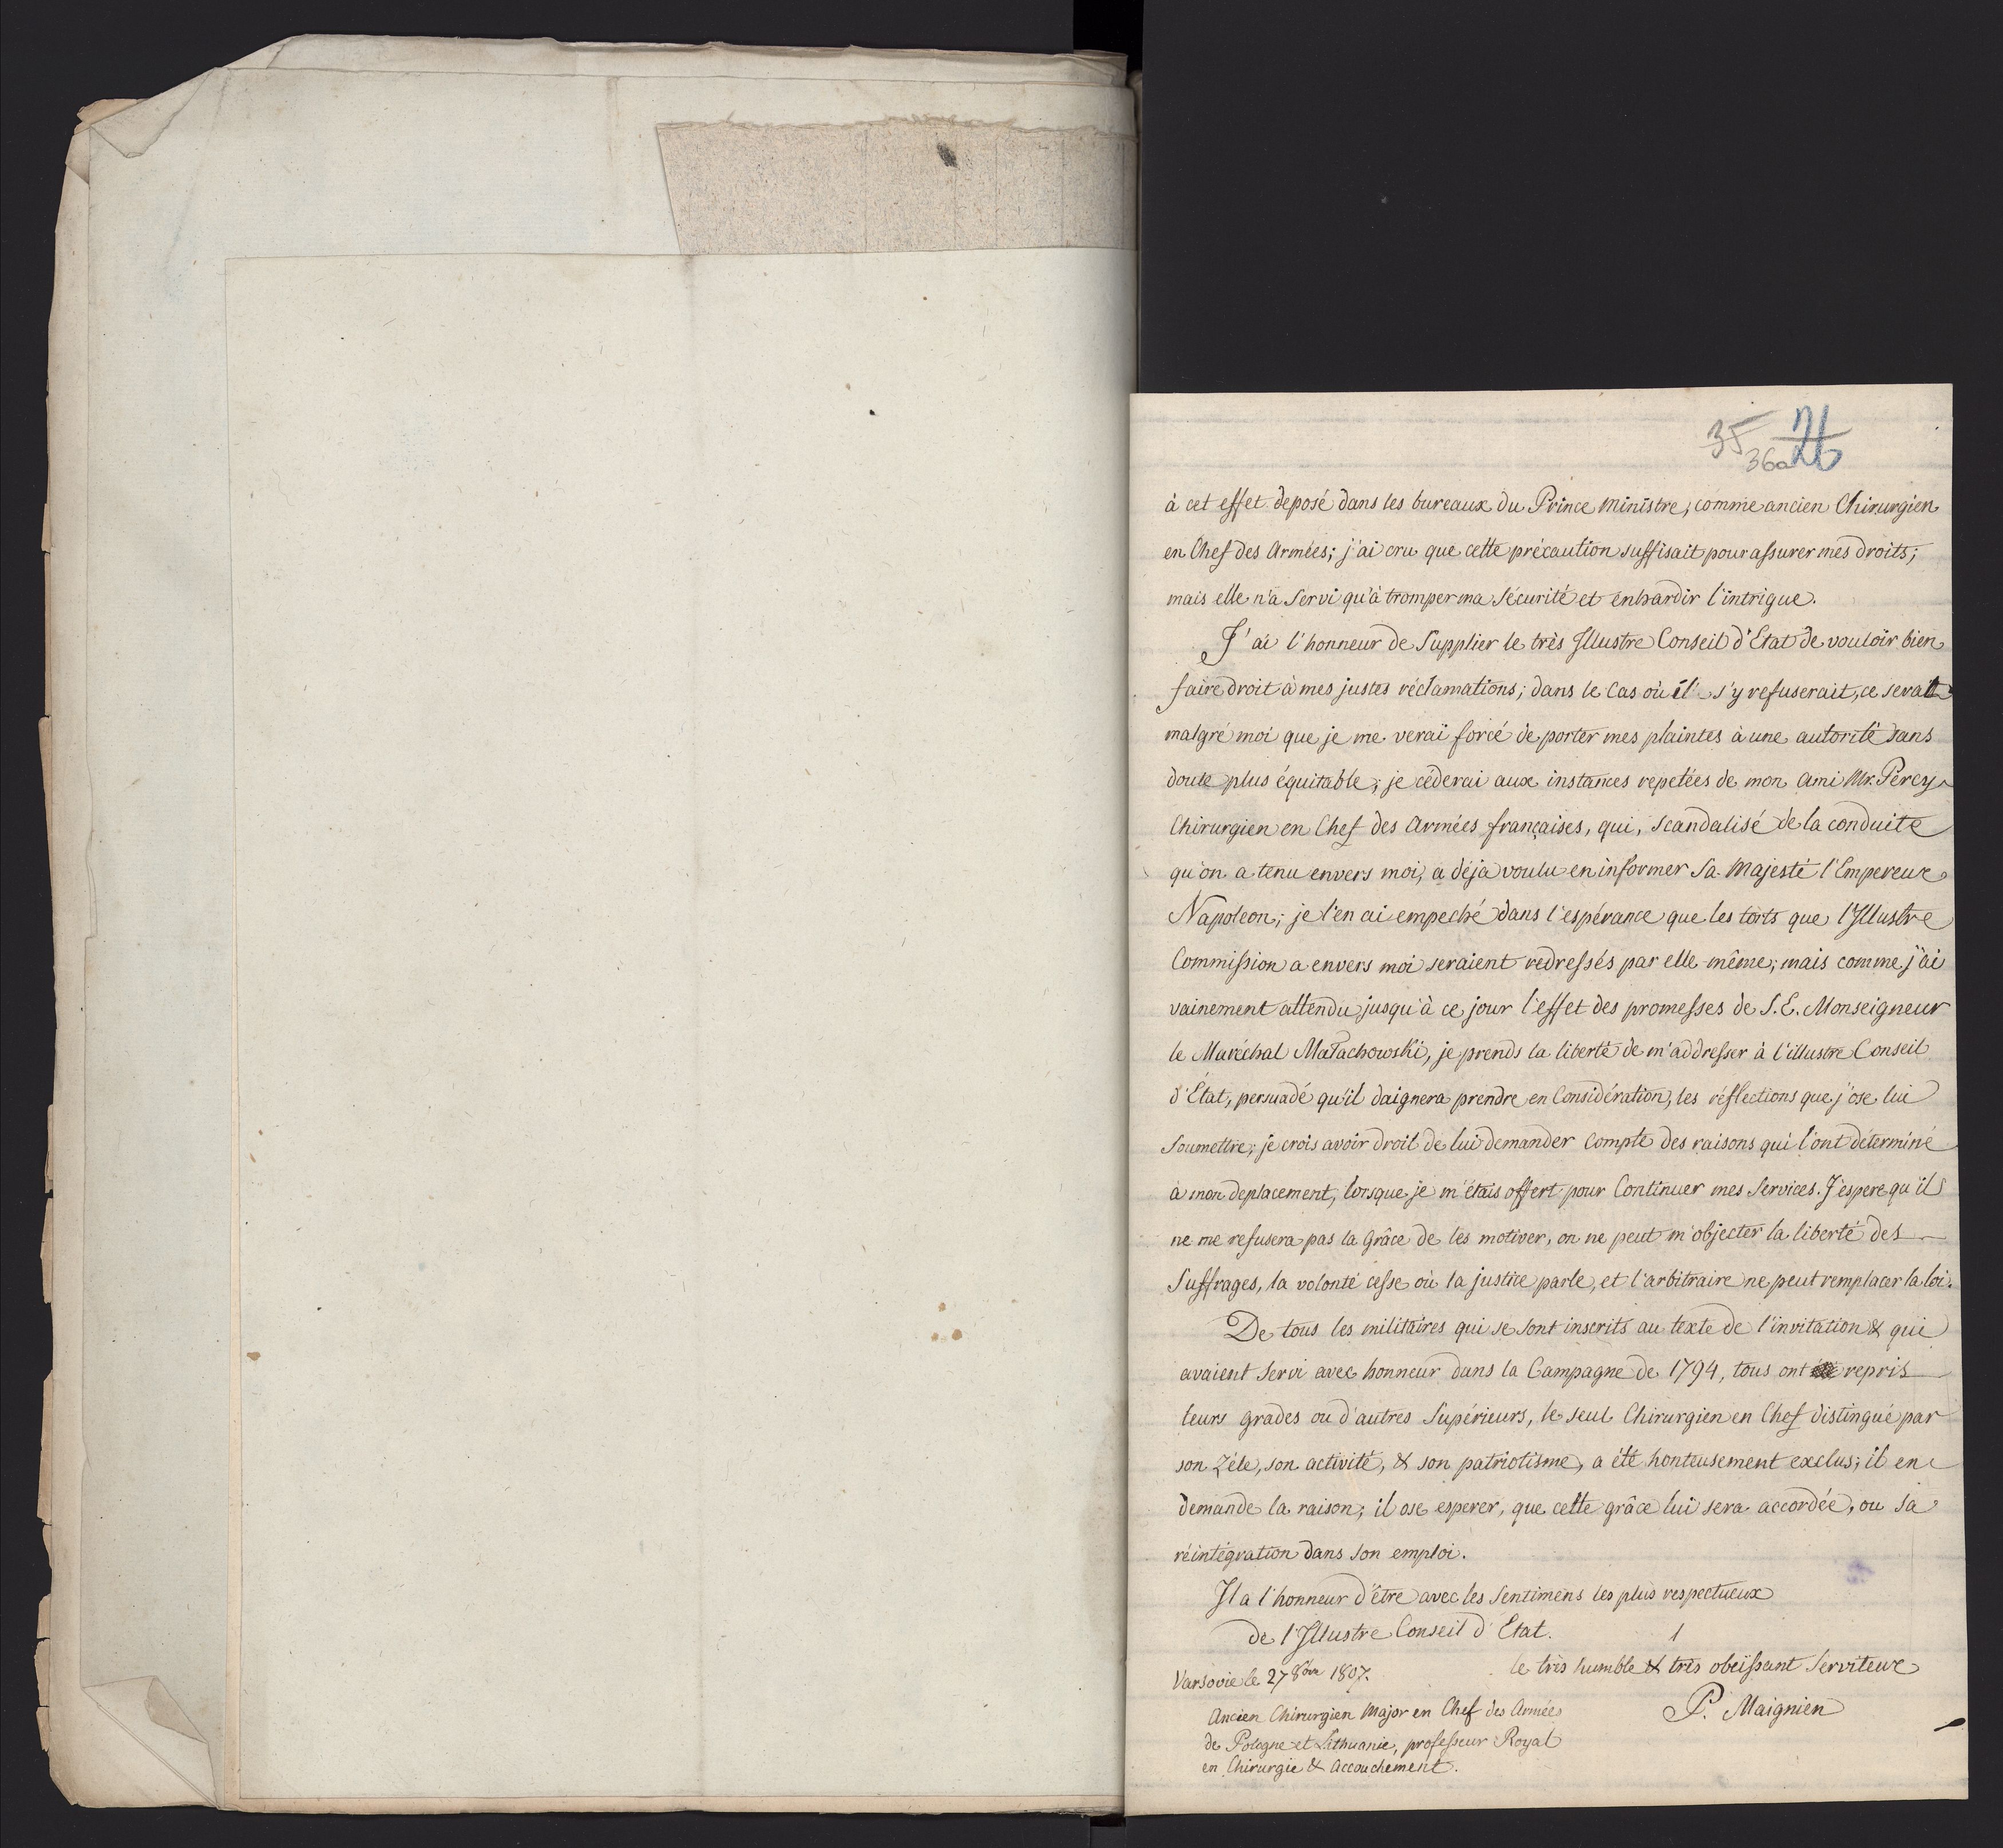 35 26
36a
à cet effet deposé dans les bureaux du Prince Ministre, comme ancien Chirurgien
en Chef des Armées; j'ai cru que cette précaution suffisait pour assurer mes droits;
mais elle n'a servi qu'à tromper ma sécurité et enhardir l'intrigue.
J'ai l'honneur de Supplier le très Illustre Conseil d'Etat de vouloir bien
faire droit à mes justes réclamations; dans le cas où il s'y refuserait, ce serait
malgré moi que je me verai forcé de porter mes plaintes à une autorité sans
doute plus équitable; je céderai aux instances repetées de mon ami Mr. Percy
Chirurgien en Chef des Armées françaises, qui, scandalisé de la conduite
qu'on a tenu envers moi, a déja voulu en informer Sa Majesté l'Empereur
Napoleon; je l'en ai empeché dans l'espérance que les torts que l'Illustre
Commission a envers moi seraient redressés par elle-même; mais comme j'ai
vainement attendu jusqu'à ce jour l'effet des promesses de S. E. Monseigneur
le Maréchal Małachowski, je prends la liberté de m'addresser à l'illustre Conseil
d'État, persuadé qu'il daignera prendre en Considération, les réflections que j'ose lui
Soumettre; je crois avoir droit de lui demander compte des raisons qui l'ont déterminé
à mon deplacement, lorsque je m'étais offert pour Continuer mes Services. J'espere qu'il
ne me refusera pas la Grâce de les motiver, on ne peut m'objecter la liberté des
Suffrages, la volonté cesse où la justice parle, et l'arbitraire ne peut remplacer la loi.
De tous les militaires qui se sont inscrits au texte de l'invitation & qui
avaient Servi avec honneur dans la Campagne de 1794, tous ont repris
leurs grades ou d'autres Supérieurs, le seul Chirurgien en Chef distingué par
son Zéle, son activité, & son patriotisme, a été honteusement exclus; il en
demande la raison; il ose esperer, que cette grâce lui sera accordée, ou sa
réintégration dans son emploi.
Il a l'honneur d'être avec les Sentimens les plus respectueux
de l'Illustre Conseil d'Etat.
le très humble & très obeissant Serviteur
Varsovie le 27 8bre 1807.
P. Maignien
Ancien Chirurgien Major en Chef des Armées
de Pologne et Lithuanie, professeur Royal
en Chirurgie & Accouchement.